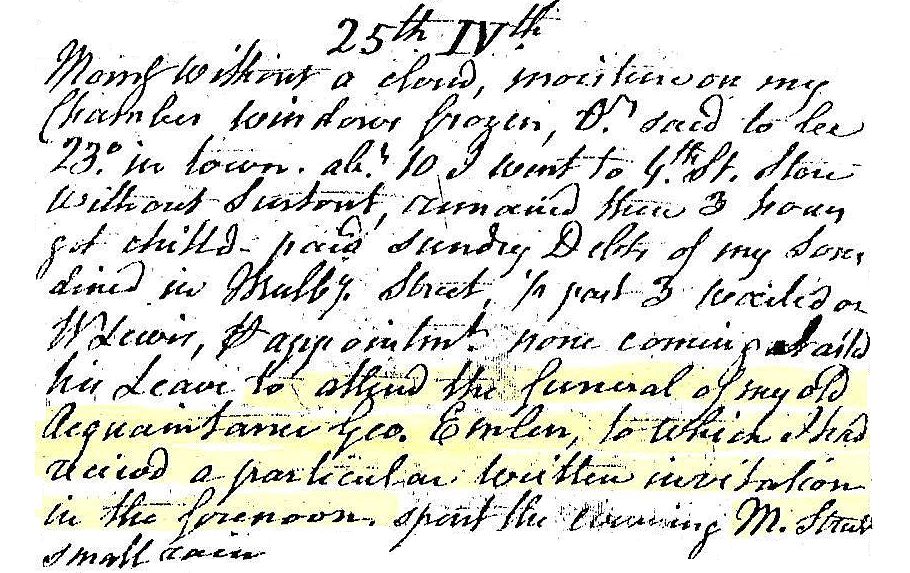 25th IVth
Morng without a cloud, moisture on my
Chamber windows frozen, said to be
23° in town. abt. 10 I went to 4th St. Store
without Surtout, remained there 3 hours
got chilld - paid sundry Debts of my Sons
dined in Mulby. Street, ½ past 3 waited on
W Lewis, ⅌ appointmt. none coming askd
his Leave to attend the funeral of my old
Acquaintance Geo. Emlen, to which I had
recievd a particular written invitation
in the forenoon. spent the evening M. Street
small rain